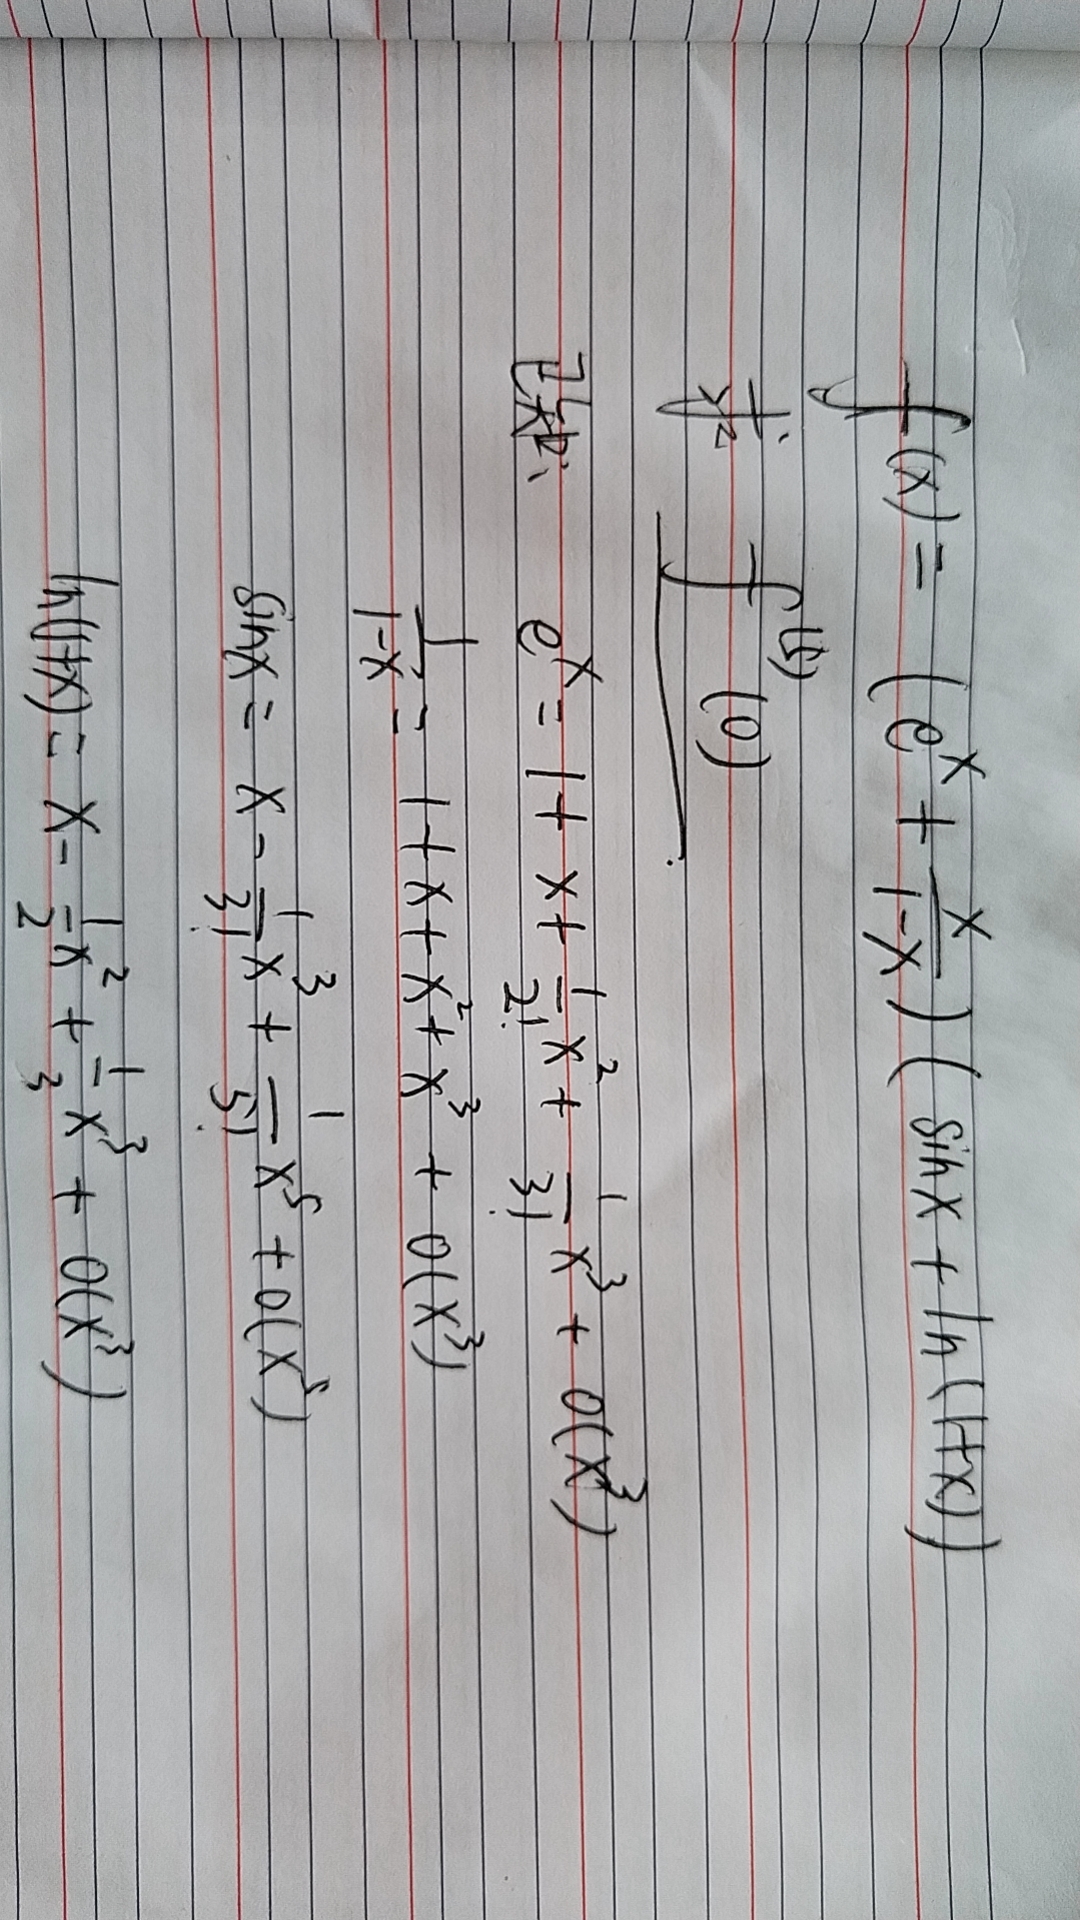 f(x) = (e^x + x/(1-x)) (sinx + ln(1+x))
求 f^(5)(0).
已知: e^x = 1 + x + 1/2! x^2 + 1/3! x^3 + o(x^3)
1/(1-x) = 1 + x + x^2 + x^3 + o(x^3)
sinx = x - 1/3! x^3 + 1/5! x^5 + o(x^5)
ln(1+x) = x - 1/2 x^2 + 1/3 x^3 + o(x^3)